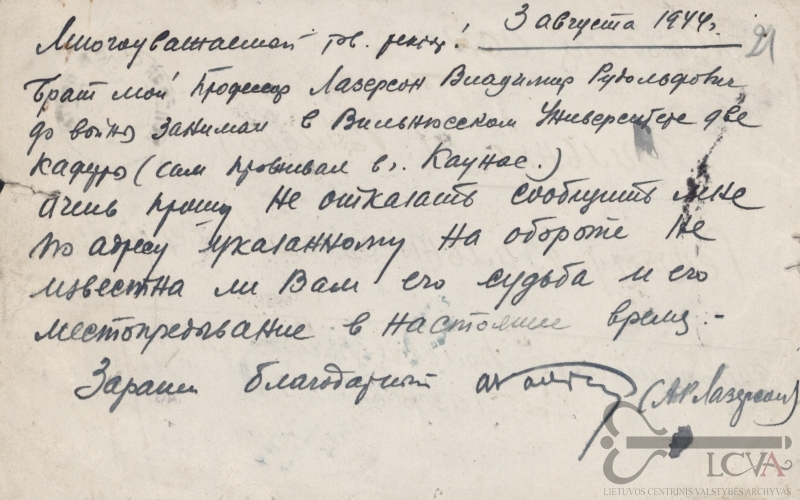 3 августа 1944 г.
21
Многоуважаемой тов.
Брат мой Профессор Лазерсон Владимир Рудольфович
до войны занимал в Вильнюсском Университете две
кафедры (сам проживал в г. Каунас.)
Очень прошу не отказать сообщить мне
по адресу указанному на обороте не
известна ли Вам его судьба и его
местопребывание в настоящее время. -
Заранее благодарный
(А.Р. Лазерсон)
LCVA
LIETUVOS CENTRINIS VALSTYBĖS ARCHYVAS